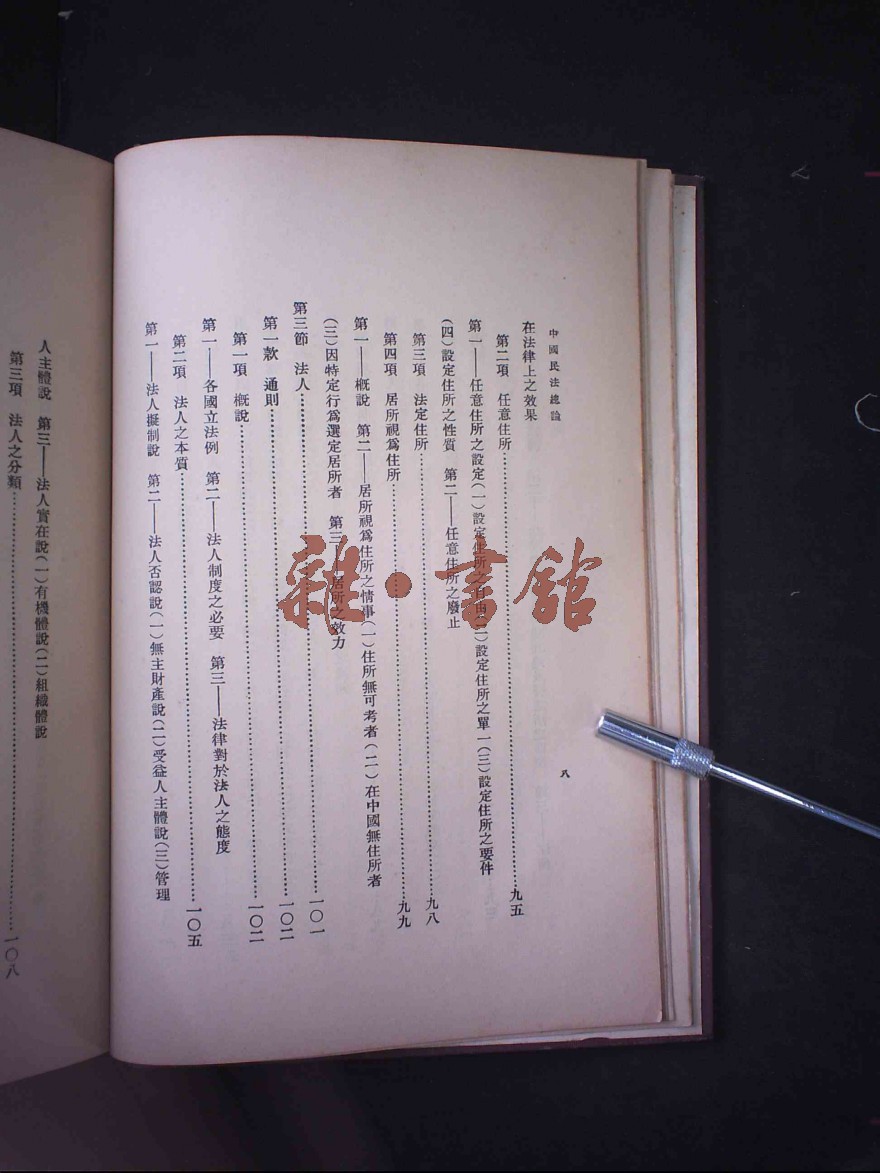 中國民法總論
八
在法律上之效果
第二項　任意住所……九五
第一——任意住所之設定(一)設定住所之自由(二)設定住所之單一(三)設定住所之要件
(四)設定住所之性質　第二——任意住所之廢止
第三項　法定住所……九八
第四項　居所視爲住所……九九
第一——槪說　第二——居所視爲住所之情事(一)住所無可考者(二)在中國無住所者
(三)因特定行爲選定居所者　第三——居所之效力
第三節　法人……一〇一
第一款　通則……一〇二
第一項　槪說……一〇二
第一——各國立法例　第二——法人制度之必要　第三——法律對於法人之態度
第二項　法人之本質……一〇五
第一——法人擬制說　第二——法人否認說(一)無主財產說(二)受益人主體說(三)管理
人主體說　第三——法人實在說(一)有機體說(二)組織體說
第三項　法人之分類……一〇八
雜·書館